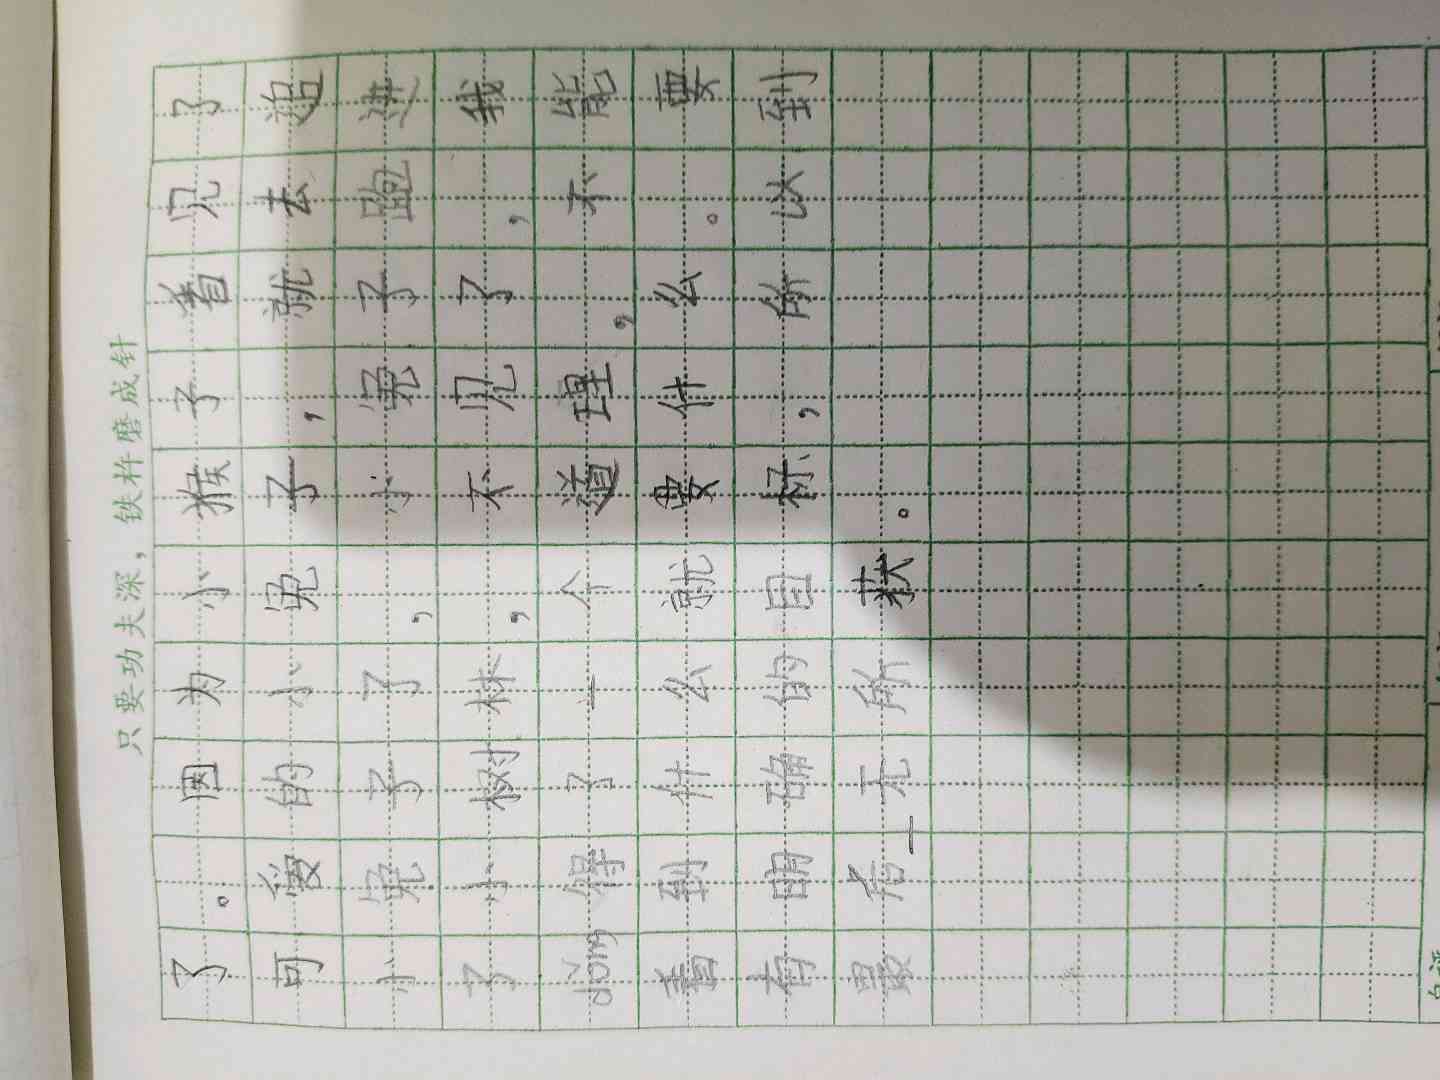 只要功夫深，铁杵磨成针
了。因为小猴子看见了
可爱的小兔子，就去追
小兔子了，小兔子跑进
了小树林，不见了，我
dǒng得了一个道理，不能
看到什么就要什么。要
有明确的目标，所以到
最后一无所获。